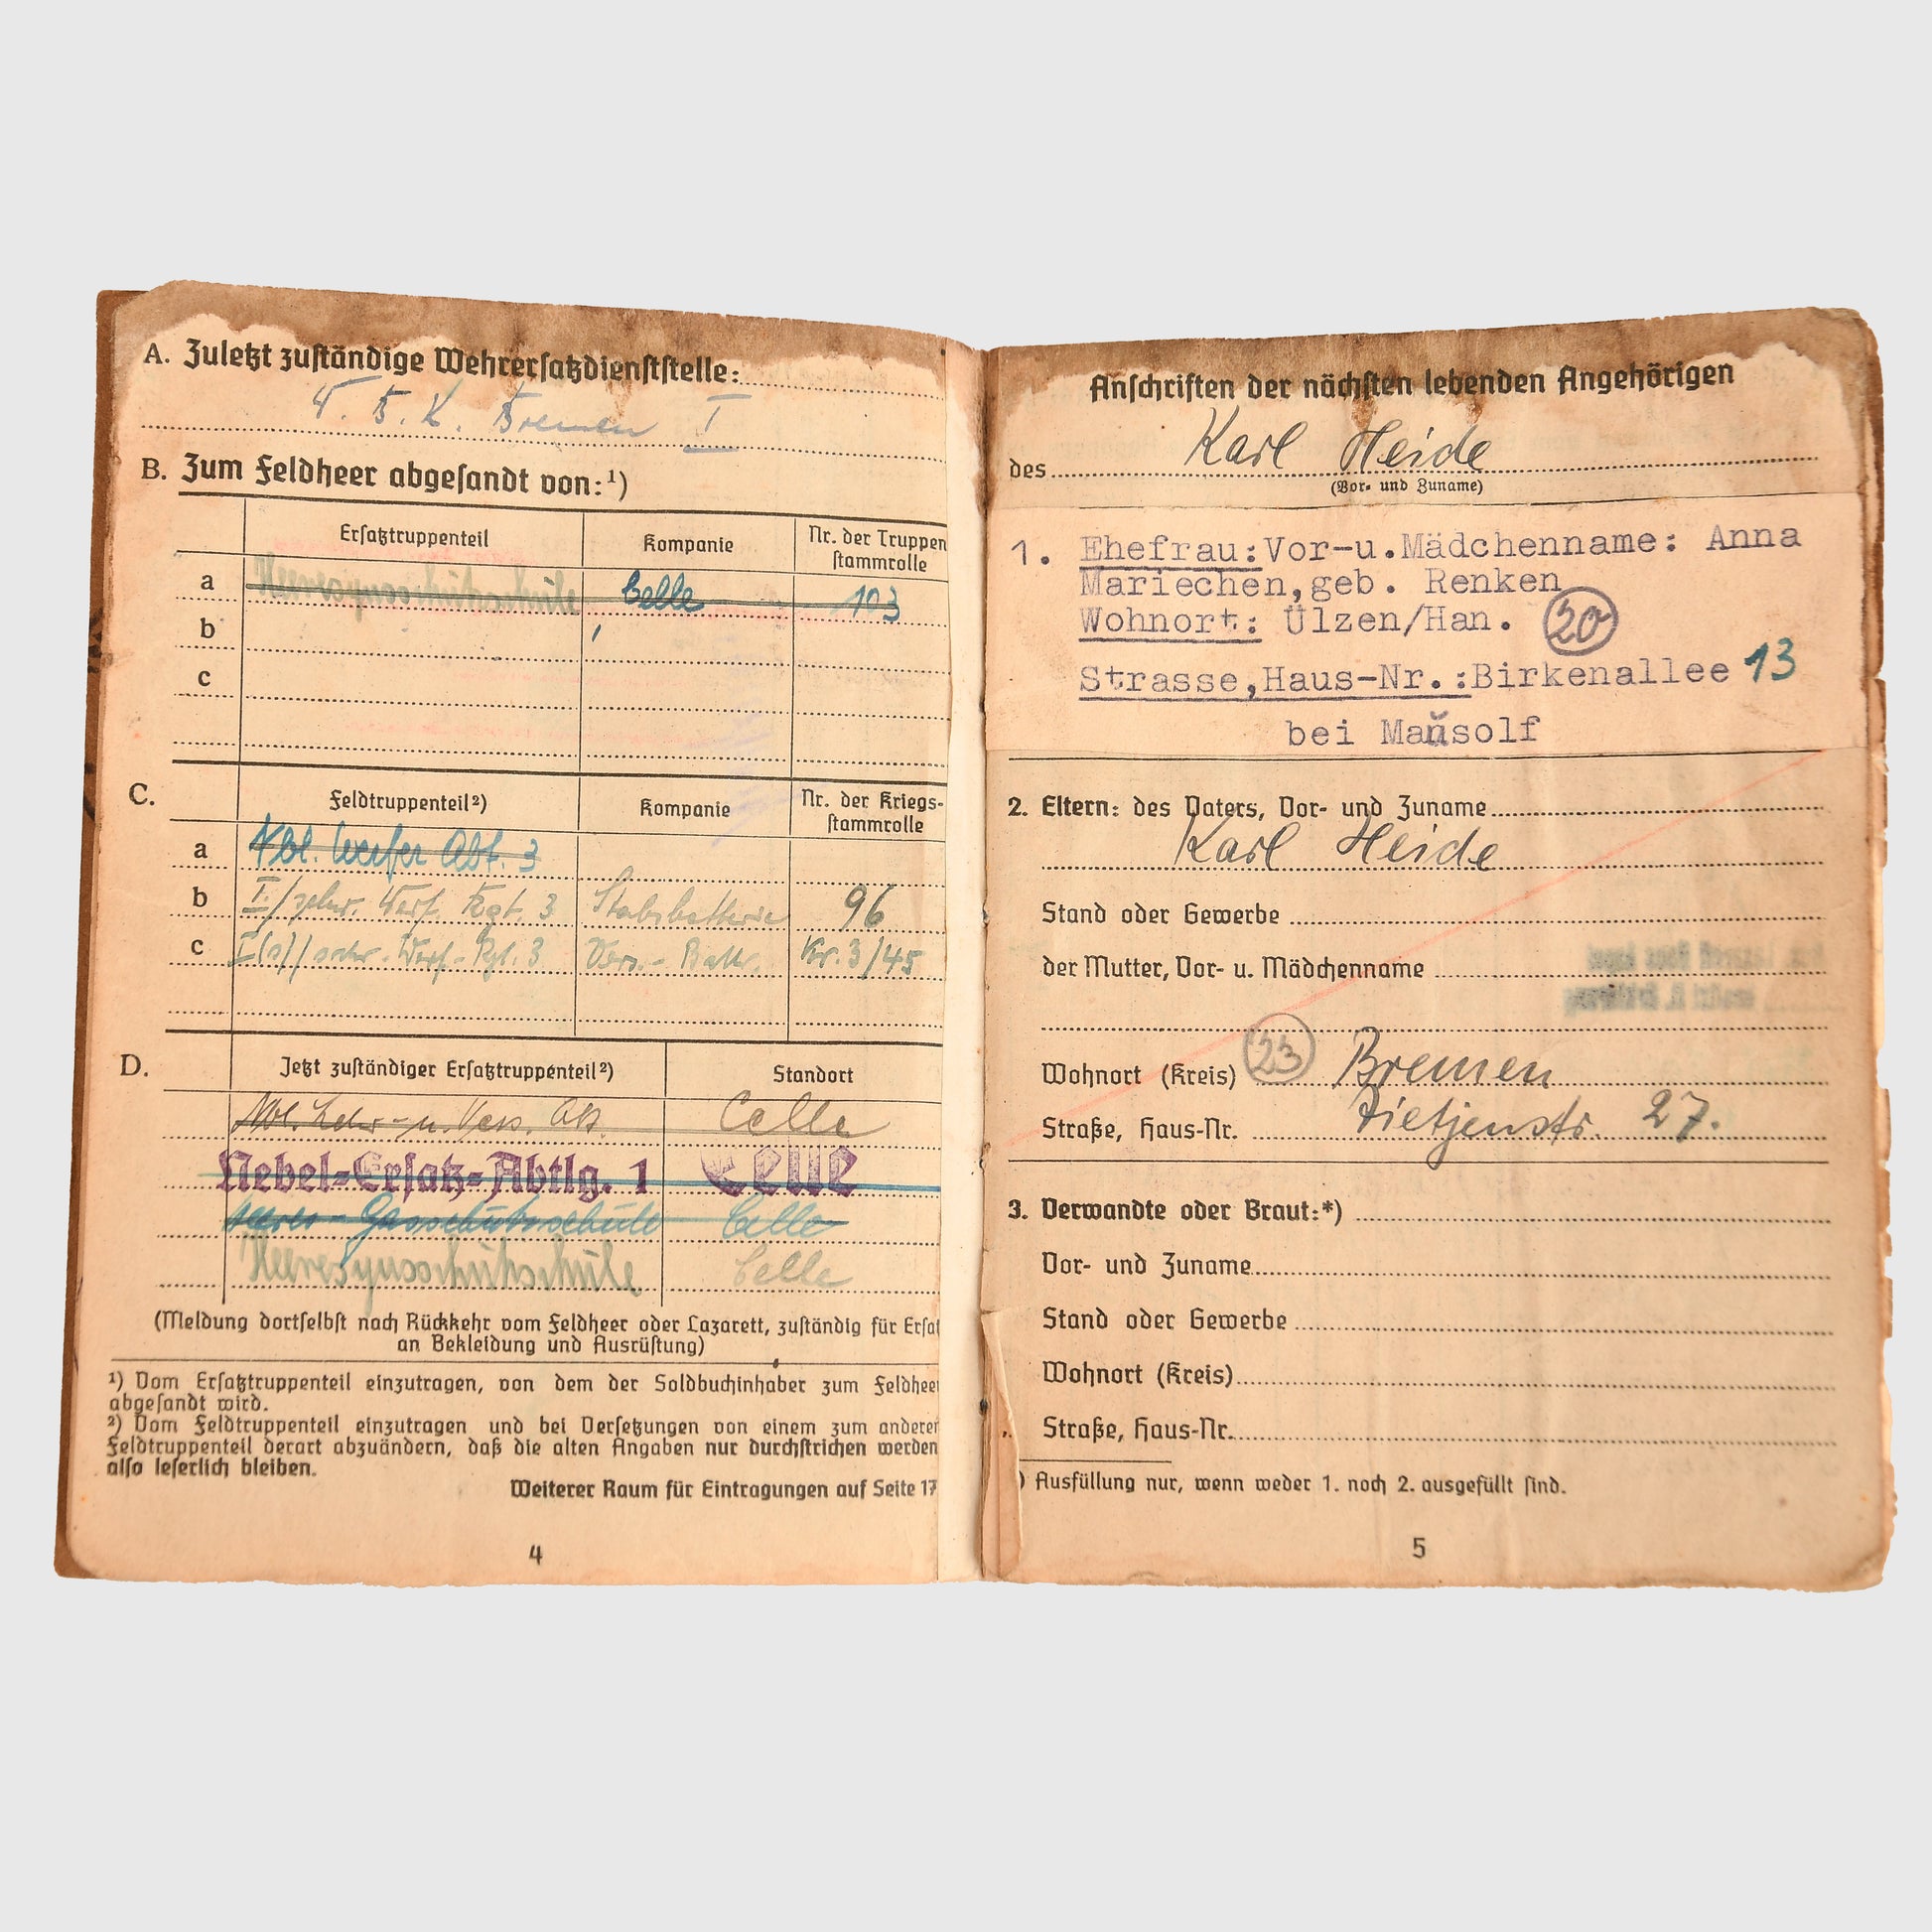 A. Zuletzt zuständige Wehrersatzdienststelle:
W. B. K. Bremen I
B. Zum Feldheer abgesandt von:¹)
Ersatztruppenteil Kompanie Nr. der Truppen
stammrolle
a Heeresgasschutzschule Celle 103
b
c
C. Feldtruppenteil²) Kompanie Nr. der Kriegs-
stammrolle
a Nbl. Werfer Abt. 3
b I./schw. Werf. Rgt. 3 Stabsbatterie 96
c Werf.-Rgt. 3 Vers.-Battr. Kr. 3/45
D. Jetzt zuständiger Ersatztruppenteil²) Standort
Nbl. Lehr- u. Vers. Celle
Nebel-Ersatz-Abtlg. 1 Celle
Heeres-Gasschutzschule Celle
Heeresgasschutzschule Celle
(Meldung dortselbst nach Rückkehr vom Feldheer oder Lazarett, zuständig für Ersa
an Bekleidung und Ausrüstung)
¹) Vom Ersatztruppenteil einzutragen, von dem der Soldbuchinhaber zum Feldhee
abgesandt wird.
²) Vom Feldtruppenteil einzutragen und bei Versetzungen von einem zum andere
Feldtruppenteil derart abzuändern, daß die alten Angaben nur durchstrichen werden
also leserlich bleiben.
Weiterer Raum für Eintragungen auf Seite 17
4
Anschriften der nächsten lebenden Angehörigen
des Karl Heide
(Vor- und Zuname)
1. Ehefrau:Vor-u.Mädchenname: Anna
Mariechen,geb. Renken
Wohnort: Ülzen/Han. 20
Strasse,Haus-Nr.:Birkenallee 13
bei Mausolf
2. Eltern: des Vaters, Vor- und Zuname
Karl Heide
Stand oder Gewerbe
der Mutter, Vor- u. Mädchenname
Wohnort (Kreis) 23 Bremen
Straße, Haus-Nr. Dietjenstr. 27.
3. Verwandte oder Braut:*)
Vor- und Zuname
Stand oder Gewerbe
Wohnort (Kreis)
Straße, Haus-Nr.
) Ausfüllung nur, wenn weder 1. noch 2. ausgefüllt sind.
5